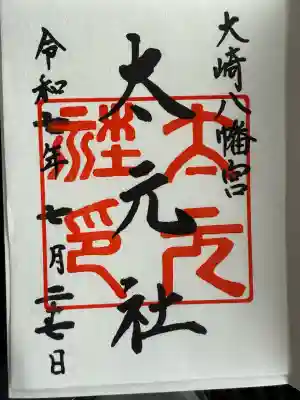 大崎八幡宮
太元社
令和七年 七月二十七日
太元社印